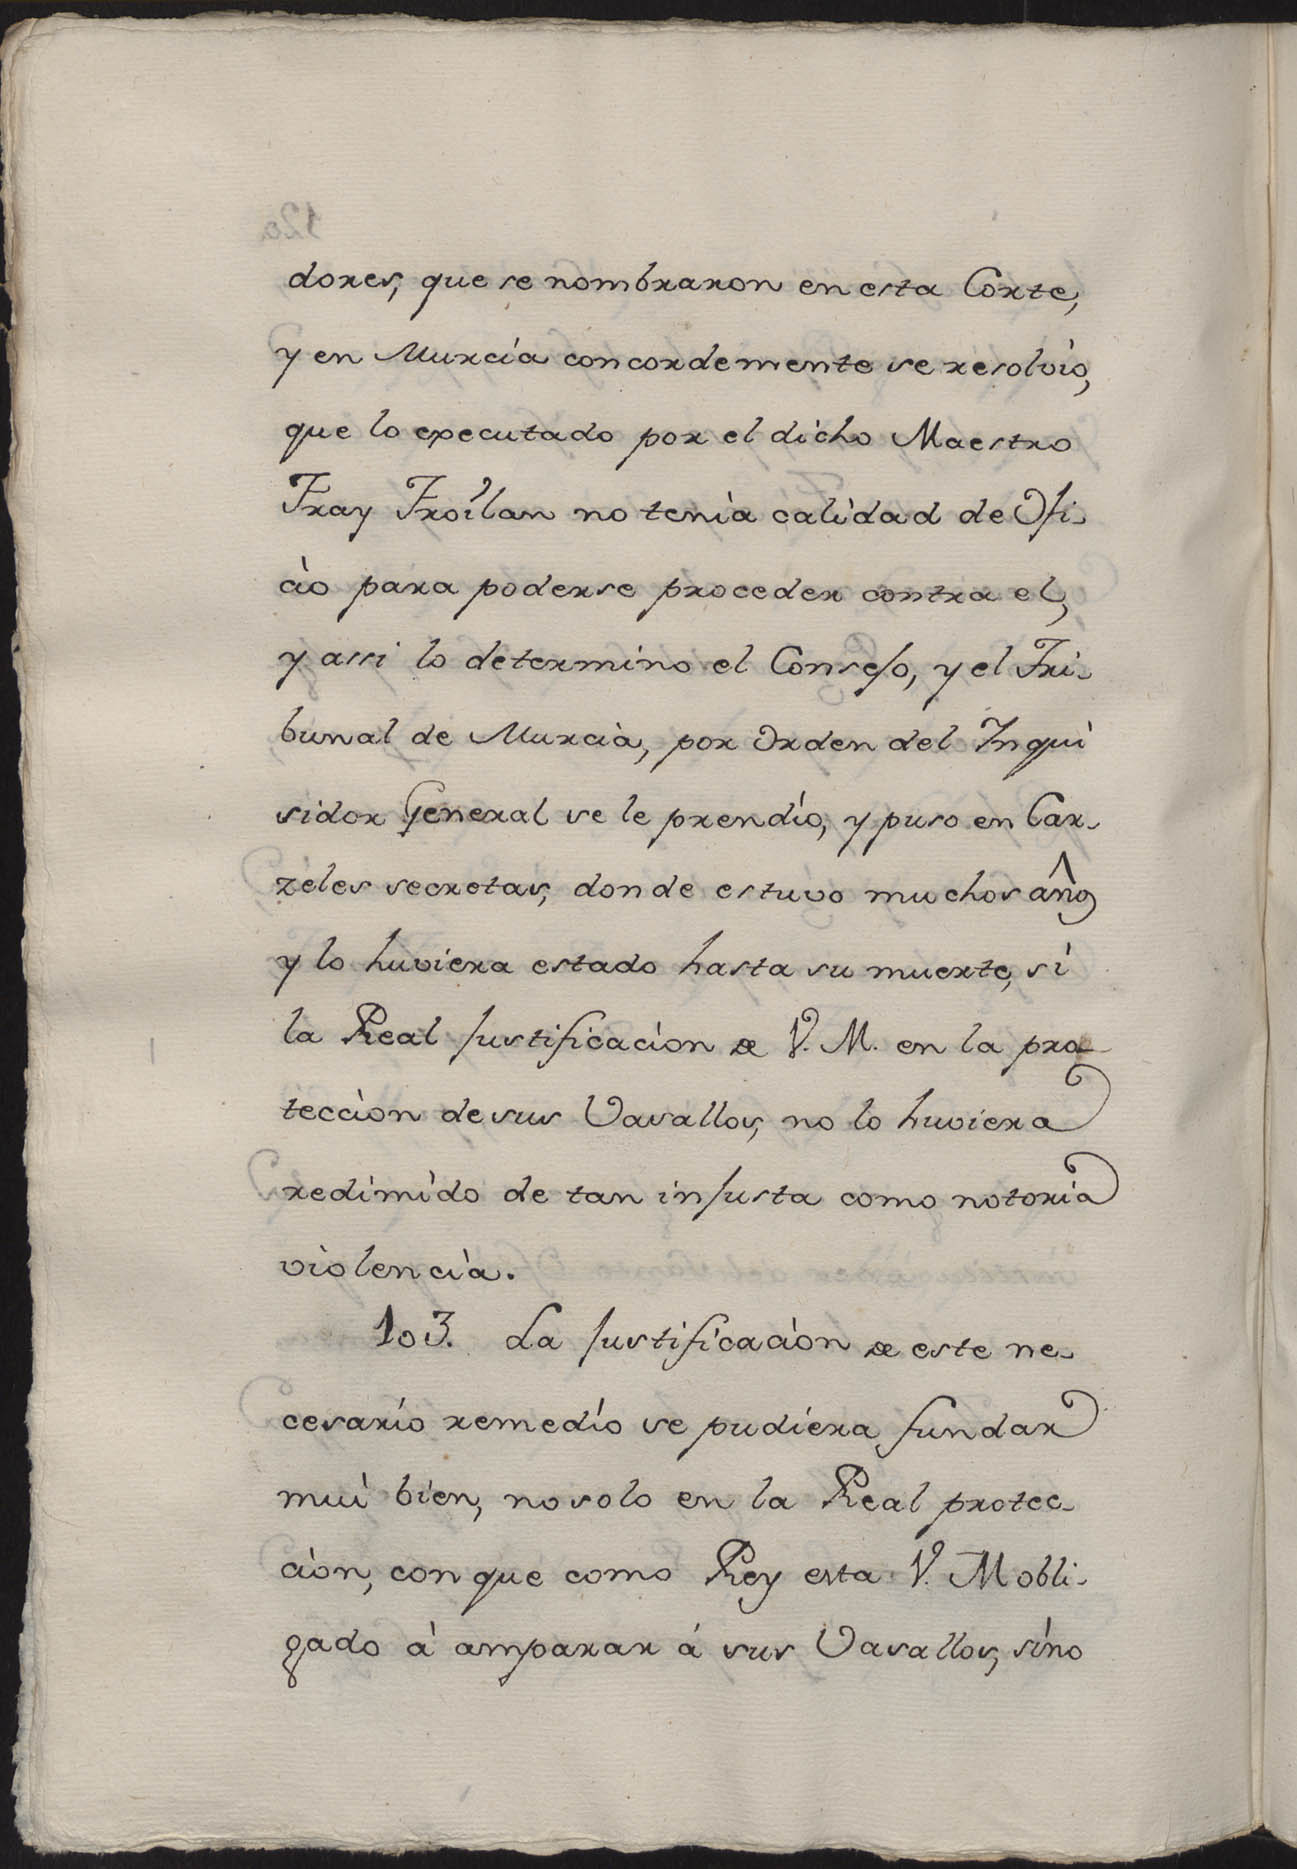 dores, que se nombraron en esta Corte,
y en Murcia concordemente se resolvio,
que lo executado por el dicho Maestro
Fray Froilan no tenia calidad de Ofi-
cio para poderse proceder contra el,
y assi lo determino el Consejo, y el Tri-
bunal de Murcia, por Orden del Inqui
sidor General se le prendio, y puso en Car-
zeles secretas, donde estuvo muchos años
y lo huviera estado hasta su muerte, si
la Real Justificacion de V. M. en la pro-
teccion de sus Vasallos, no lo huviera
redimido de tan injusta como notoria
violencia.
103. La Justificacion de este ne-
cesario remedio se pudiera fundar
mui bien, no solo en la Real protec-
cion, con que como Rey esta V. M obli-
gado à amparar á sus Vasallos, sino